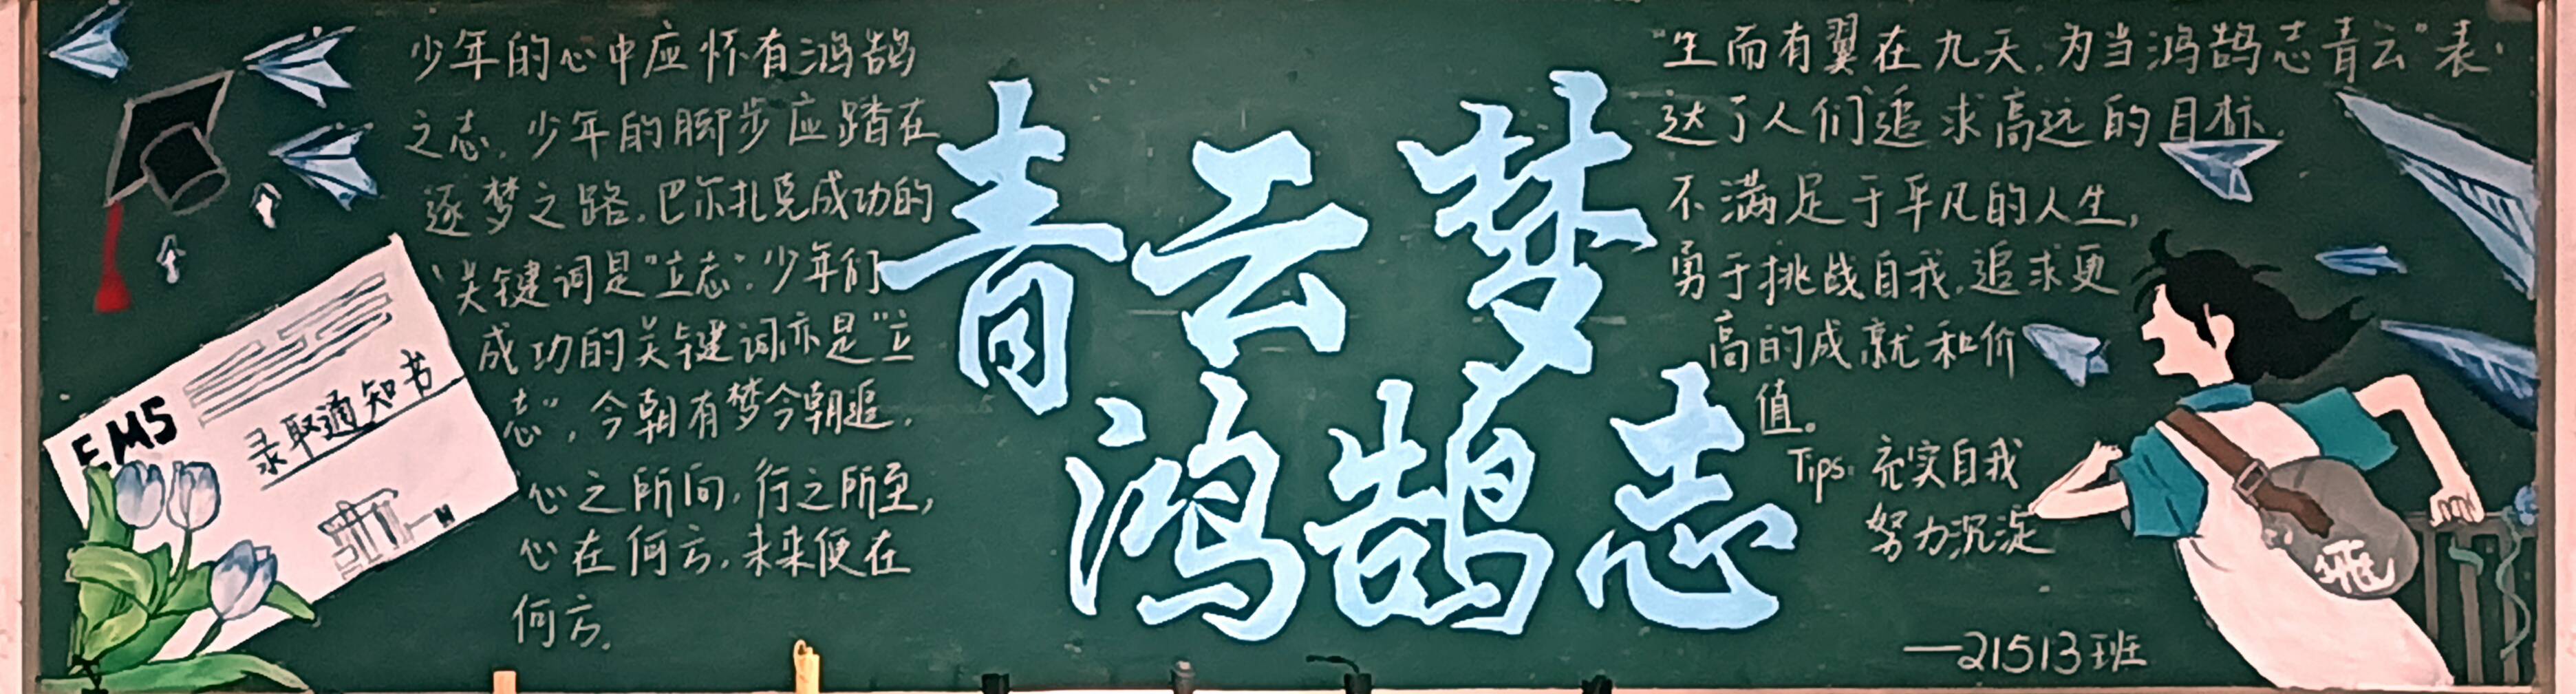 少年的心中应怀有鸿鹄
之志，少年的脚步应踏在
逐梦之路。巴尔扎克成功的
关键词是“立志”。少年们
成功的关键词亦是“立
志”，今朝有梦今朝追，
心之所向，行之所至，
心在何方，未来便在
何方。
EMS
录取通知书
青云梦
鸿鹄志
“生而有翼在九天，为当鸿鹄志青云”表
达了人们追求高远的目标，
不满足于平凡的人生，
勇于挑战自我，追求更
高的成就和价
值。
Tips: 充实自我
努力沉淀
——21513班